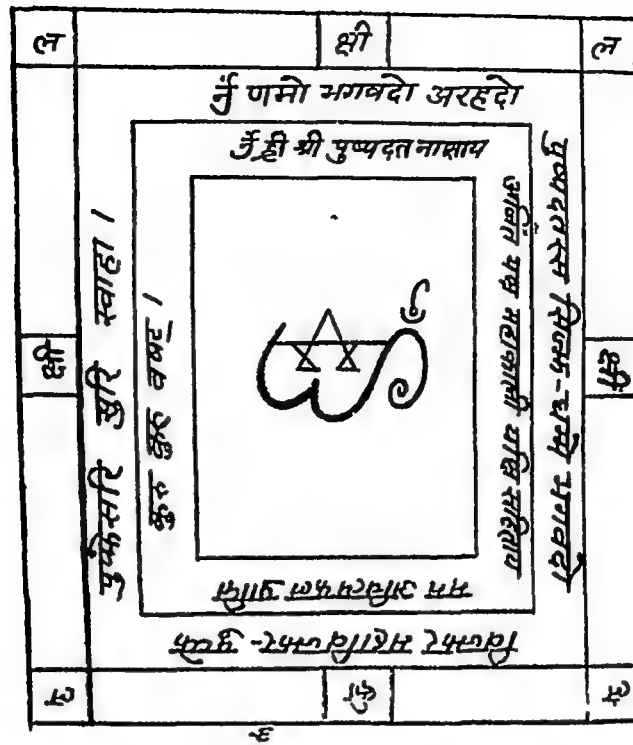 ल क्षी ल
ॐ णमो भगवदो अरहदो
पुष्पदतस्स सिज्झ-धम्मे भगवदो
विज्झर महाविज्झर-पुप्फे
पुप्फेसरि सुरि स्वाहा।
ॐ ह्री श्री पुष्पदत नाथाय
अजित यक्ष महाकाली यक्षि सहिताय
मम अचित्यफल प्राप्ति
कुरु कुरु वषट्।
क्षी
क्षी
ल क्षी ल